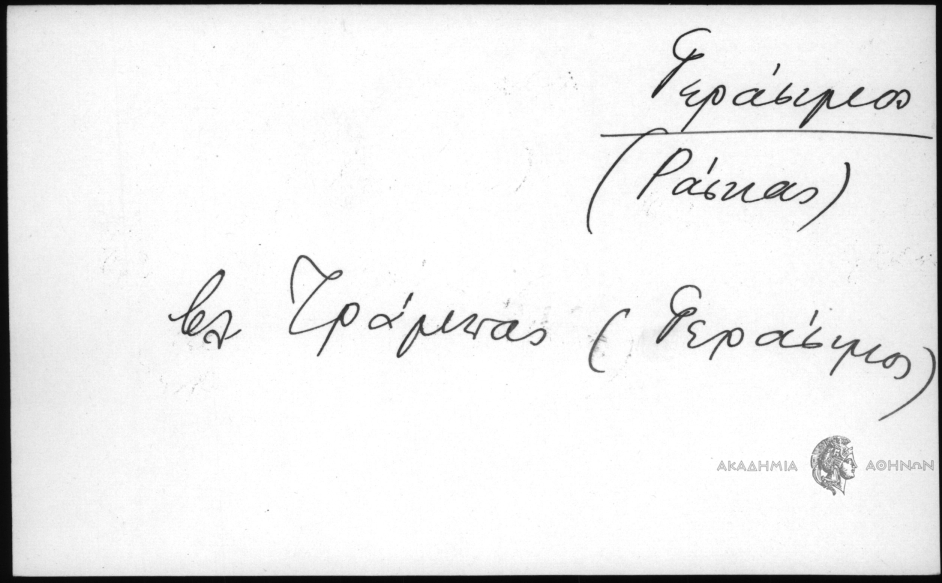 Γεράσιμος
(Ράσκας)
βλ Τράμπας (Γεράσιμος)
ΑΚΑΔΗΜΙΑ ΑΘΗΝΩΝ